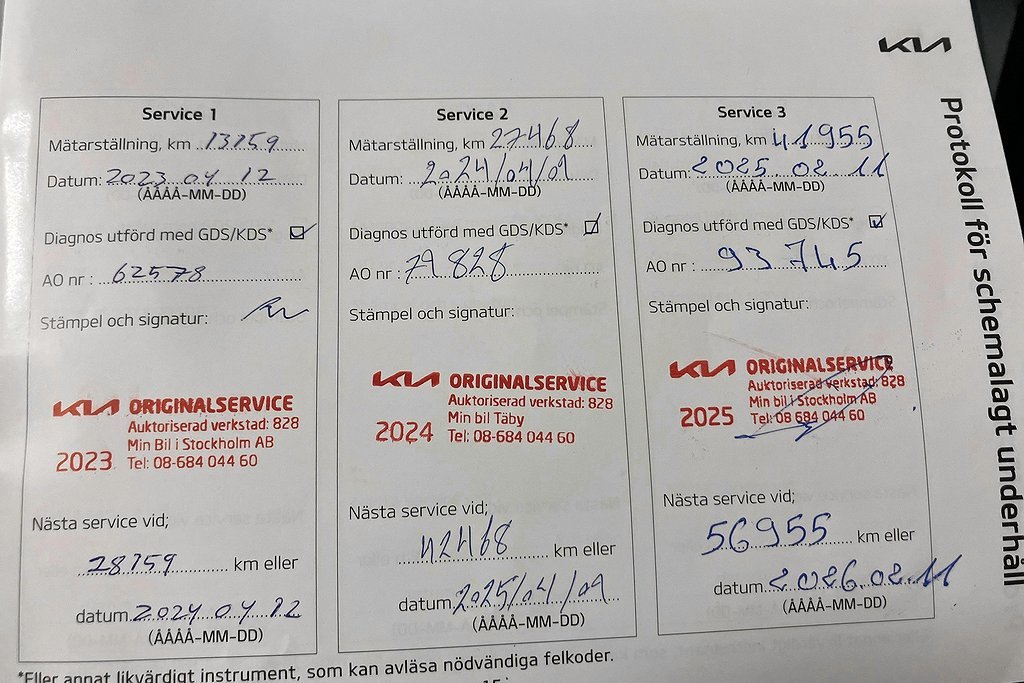 KIA
Protokoll för schemalagt underhåll
Service 1
Mätarställning, km 13759
Datum: 2023 04 12
(ÅÅÅÅ-MM-DD)
Diagnos utförd med GDS/KDS*
AO nr : 62578
Stämpel och signatur:
KIA ORIGINALSERVICE
Auktoriserad verkstad: 828
Min Bil i Stockholm AB
2023 Tel: 08-684 044 60
Nästa service vid;
28759 km eller
datum 2024 04 12
(ÅÅÅÅ-MM-DD)
Service 2
Mätarställning, km 27468
Datum: 2024/04/09
(ÅÅÅÅ-MM-DD)
Diagnos utförd med GDS/KDS*
AO nr : 79828
Stämpel och signatur:
KIA ORIGINALSERVICE
Auktoriserad verkstad: 828
Min bil Täby
2024 Tel: 08-684 044 60
Nästa service vid;
42468 km eller
datum 2025/04/09
(ÅÅÅÅ-MM-DD)
Service 3
Mätarställning, km 41955
Datum: 2025.02.11
(ÅÅÅÅ-MM-DD)
Diagnos utförd med GDS/KDS*
AO nr : 93745
Stämpel och signatur:
KIA ORIGINALSERVICE
Auktoriserad verkstad: 828
Min bil i Stockholm AB
2025 Tel: 08 684 044 60
Nästa service vid;
56955 km eller
datum 2026.02.11
(ÅÅÅÅ-MM-DD)
*Eller annat likvärdigt instrument, som kan avläsa nödvändiga felkoder.